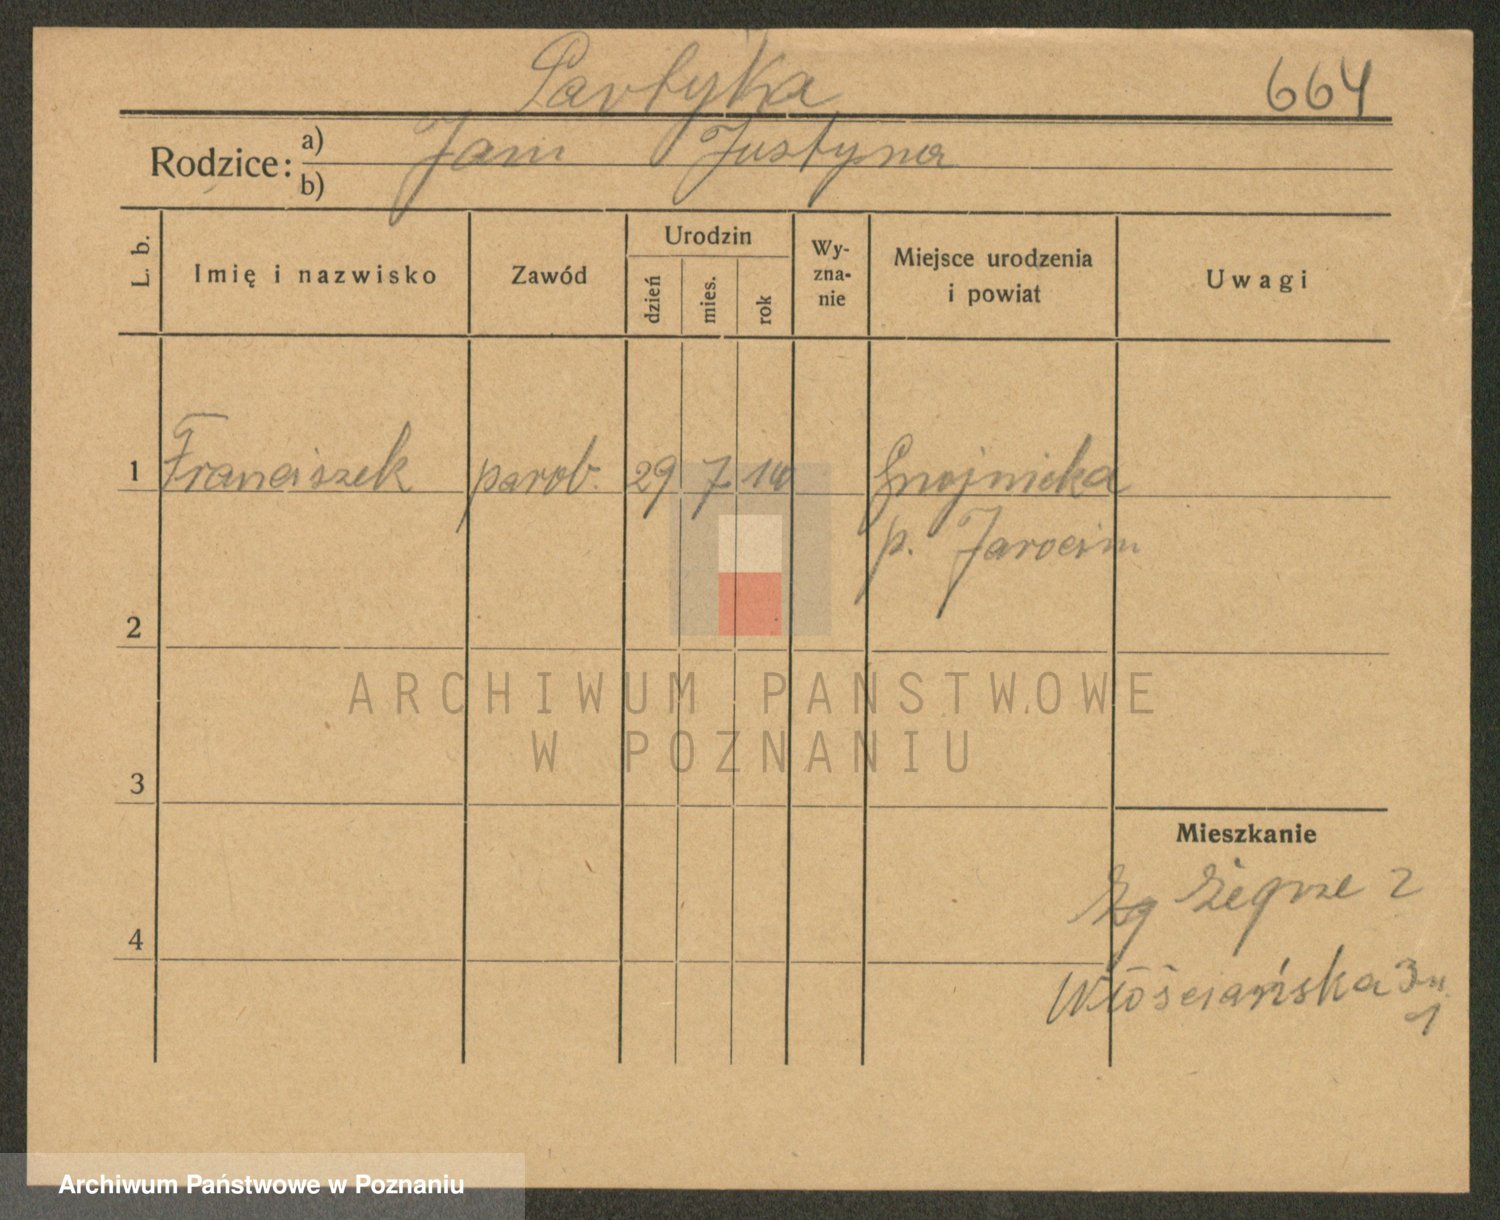 Partyka 664
Rodzice: a) Jan Justyna
b)
L. b. Imię i nazwisko Zawód Urodzin dzień mies. rok Wy-zna-nie Miejsce urodzenia i powiat Uwagi
1 Franciszek parob. 29 7 14 Gnojnicka
p. Jarocin
2
ARCHIWUM PAŃSTWOWE
W POZNANIU
3
Mieszkanie
Żegrze 2
4
Włościańska 3
1
Archiwum Państwowe w Poznaniu